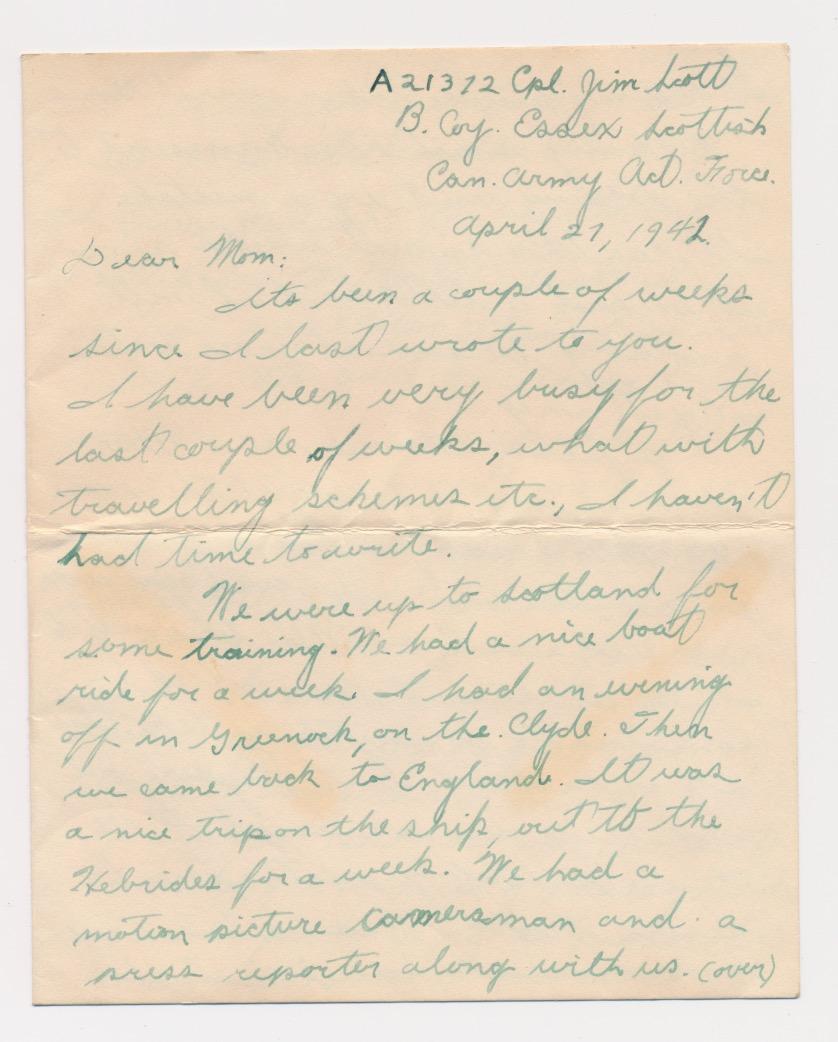 A21312 Cpl. Jim Scott
B. Coy. Essex Scottish
Can. Army Act. Force.
April 27, 1942.
Dear Mom:
Its been a couple of weeks
since I last wrote to you.
I have been very busy for the
last couple of weeks, what with
travelling schemes etc., I haven't
had time to write.
We were up to Scotland for
some training. We had a nice boat
ride for a week. I had an evening
off in Greenock, on the Clyde. Then
we came back to England. It was
a nice trip on the ship, out to the
Hebrides for a week. We had a
motion picture cameraman and a
press reporter along with us. (over)